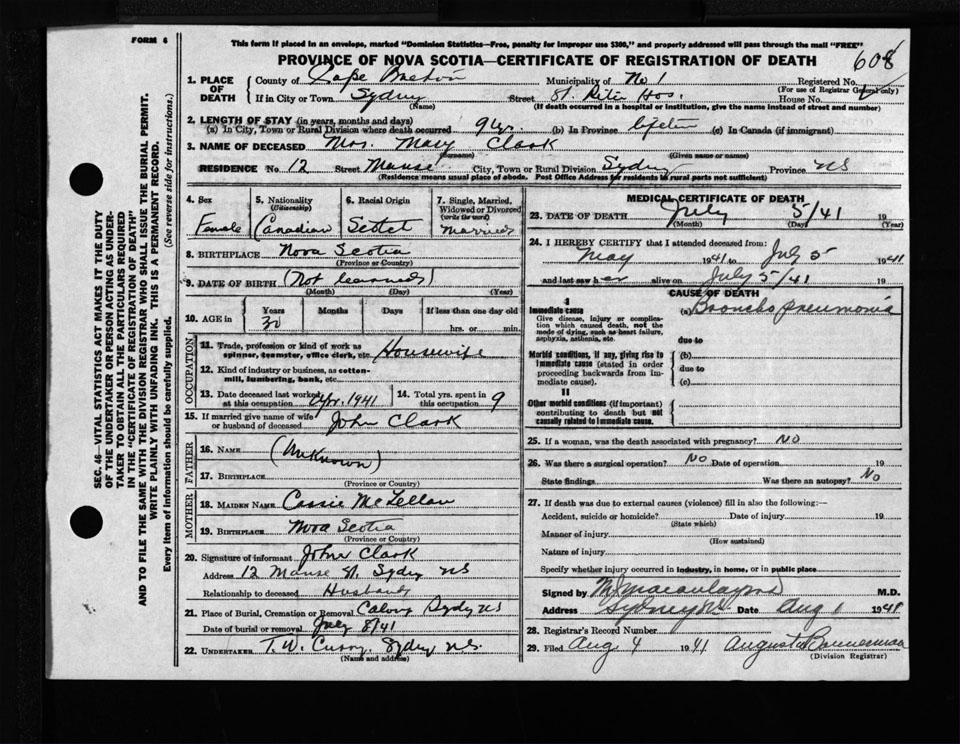 FORM 6
This form if placed in an envelope, marked "Dominion Statistics—Free, penalty for improper use $300," and properly addressed will pass through the mail "FREE"
PROVINCE OF NOVA SCOTIA—CERTIFICATE OF REGISTRATION OF DEATH
608
1. PLACE OF DEATH
County of Cape Breton Municipality of No 1 Registered No.
(For use of Registrar General only)
If in City or Town Sydney Street St. Rita Hos. House No.
(Name) (If death occurred in a hospital or institution, give the name instead of street and number)
2. LENGTH OF STAY (in years, months and days)
(a) In City, Town or Rural Division where death occurred 9 yr. (b) In Province (c) In Canada (if immigrant)
3. NAME OF DECEASED Mrs. Mary Clark
(Surname) (Given name or names)
RESIDENCE No. 12 Street Manse City, Town or Rural Division Sydney Province NS
(Residence means usual place of abode. Post Office Address for residents in rural parts not sufficient)
4. Sex Female
5. Nationality (Citizenship) Canadian
6. Racial Origin
7. Single, Married, Widowed or Divorced (write the word) Married
8. BIRTHPLACE Nova Scotia
(Province or Country)
9. DATE OF BIRTH (Not learned)
(Month) (Day) (Year)
10. AGE in Years 30 Months Days If less than one day old hrs. or min.
OCCUPATION
11. Trade, profession or kind of work as spinner, teamster, office clerk, etc. Housewife
12. Kind of industry or business, as cotton-mill, lumbering, bank, etc.
13. Date deceased last worked at this occupation Apr. 1941
14. Total yrs. spent in this occupation 9
15. If married give name of wife or husband of deceased John Clark
FATHER
16. NAME (Unknown)
17. BIRTHPLACE
(Province or Country)
MOTHER
18. MAIDEN NAME Cassie McLellan
19. BIRTHPLACE Nova Scotia
(Province or Country)
20. Signature of informant John Clark
Address 12 Manse St. Sydney NS
Relationship to deceased Husband
21. Place of Burial, Cremation or Removal Sydney NS
Date of burial or removal July 8/41
22. UNDERTAKER T. W. Curry, Sydney NS.
(Name and address)
MEDICAL CERTIFICATE OF DEATH
23. DATE OF DEATH July 5/41 19
(Month) (Day) (Year)
24. I HEREBY CERTIFY that I attended deceased from:
May 1941 to July 5 1941
and last saw her alive on July 5/41 19
CAUSE OF DEATH
I
Immediate cause (a) Broncho pneumonia
Give disease, injury or complication which caused death, not the mode of dying, such as heart failure, asphyxia, asthenia, etc.
due to
Morbid conditions, if any, giving rise to immediate cause (stated in order proceeding backwards from immediate cause).
(b)
due to
(c)
II
Other morbid conditions (if important) contributing to death but not causally related to immediate cause.
25. If a woman, was the death associated with pregnancy? No
26. Was there a surgical operation? No Date of operation 19
State findings Was there an autopsy? No
27. If death was due to external causes (violence) fill in also the following:—
Accident, suicide or homicide? Date of injury 19
(State which)
Manner of injury
(How sustained)
Nature of injury
Specify whether injury occurred in industry, in home, or in public place
Signed by M.D.
Address Sydney NS Date Aug 1 1941
28. Registrar's Record Number
29. Filed Aug 4 1941 Augusta Bannerman
(Division Registrar)
SEC. 46—VITAL STATISTICS ACT MAKES IT THE DUTY
OF THE UNDERTAKER OR PERSON ACTING AS UNDER-
TAKER TO OBTAIN ALL THE PARTICULARS REQUIRED
IN THE "CERTIFICATE OF REGISTRATION OF DEATH"
AND TO FILE THE SAME WITH THE DIVISION REGISTRAR WHO SHALL ISSUE THE BURIAL PERMIT.
WRITE PLAINLY WITH UNFADING INK. THIS IS A PERMANENT RECORD.
Every item of information should be carefully supplied. (See reverse side for instructions.)